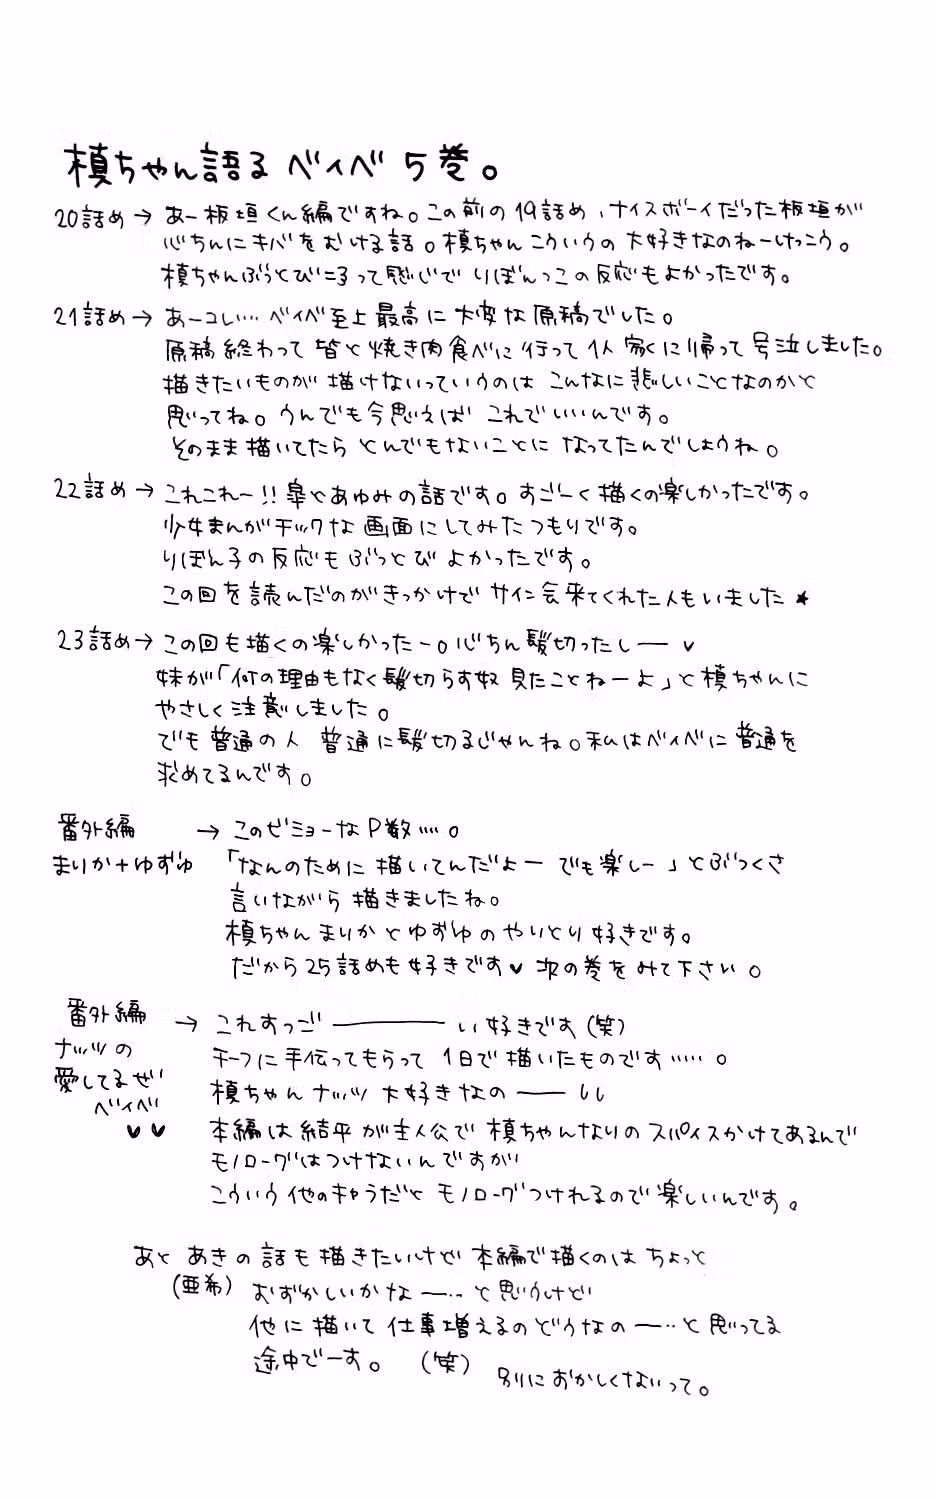 槙ちゃん語るベイベ5巻。
20話め→あー板垣くん編ですね。この前の19話め、ナイスボーイだった板垣が
心ちんにキバをむける話。槙ちゃんこういうの大好きなのねーけっこう。
槙ちゃんぶっとびころって感じでりぼんっこの反応もよかったです。
21話め→あーコレ…ベイベ至上最高に大変な原稿でした。
原稿終わって皆と焼き肉食べに行って1人家に帰って号泣しました。
描きたいものが描けないっていうのはこんなに悲しいことなのかと
思ってね。うんでも今思えばこれでいいんです。
そのまま描いてたらとんでもないことになってたんでしょうね。
22話め→これこれー!!皐とあゆみの話です。すごーく描くの楽しかったです。
少女まんがチックな画面にしてみたつもりです。
りぼん子の反応もぶっとびよかったです。
この回を読んだのがきっかけでサイン会来てくれた人もいました★
23話め→この回も描くの楽しかったー。心ちん髪切ったしー♥
妹が「何の理由もなく髪切らす奴見たことねーよ」と槙ちゃんに
やさしく注意しました。
でも普通の人普通に髪切るじゃんね。私はベイベに普通を
求めてるんです。
番外編
まりか+ゆずゆ
→このビミョーなP数…。
「なんのために描いてんだよーでも楽しー」とぶつくさ
言いながら描きましたね。
槙ちゃんまりかとゆずゆのやりとり好きです。
だから25話めも好きです♥次の巻をみて下さい。
番外編
ナッツの
愛してるぜ
ベイベ
♥♥
→これすっごーい好きです(笑)
チーフに手伝ってもらって1日で描いたものです……。
槙ちゃんナッツ大好きなのーしし
本編は結平が主人公で槙ちゃんなりのスパイスかけてあるんで
モノローグはつけないんですが
こういう他のキャラだとモノローグつけれるので楽しいんです。
あとあきの話も描きたいけど本編で描くのはちょっと
(亜希)
むずかしいかなー…と思うけど
他に描いて仕事増えるのどうなのー…と思ってる
途中でーす。(笑)
別におかしくないって。